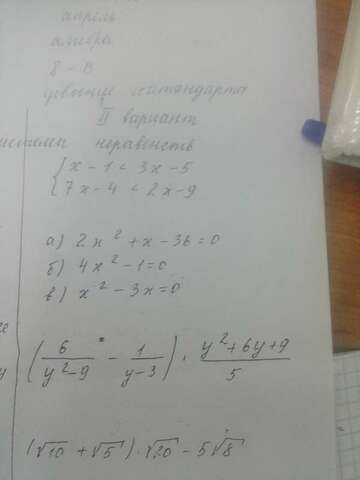 апрель
алгебра
8 - В
II вариант
неравенств
{ x - 1 < 3x - 5
7x - 4 < 2x - 9
а) 2x² + x - 36 = 0
б) 4x² - 1 = 0
в) x² - 3x = 0
(6/(y² - 9) - 1/(y - 3)) · (y² + 6y + 9)/5
(√10 + √5) · √20 - 5√8